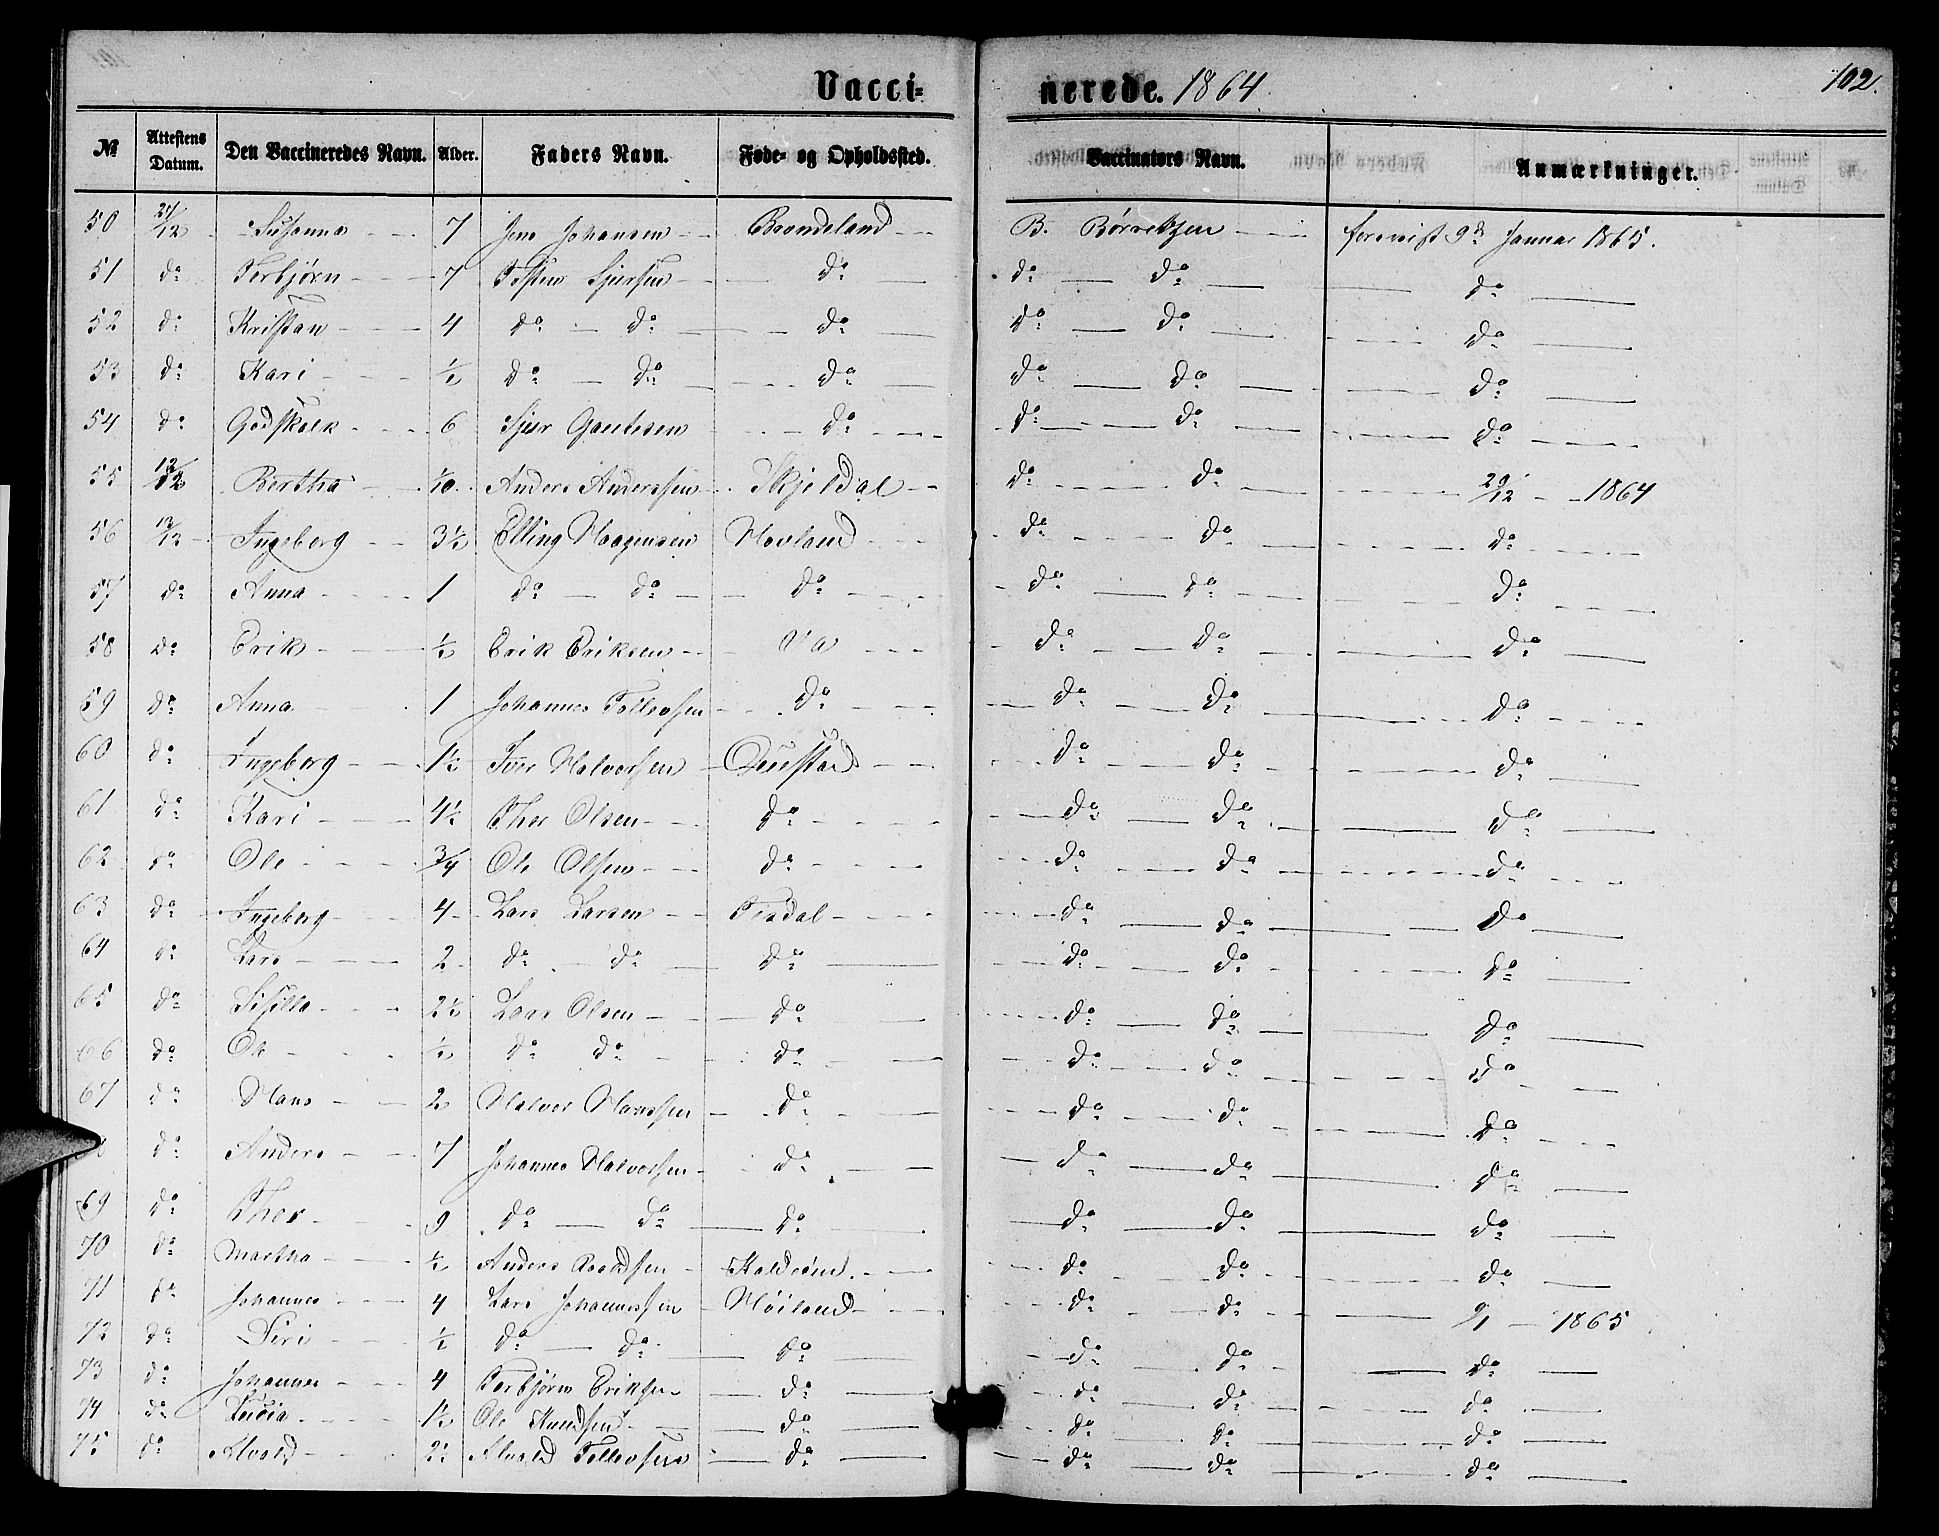 Vacci=
nerede. 1864
102.
№ Attestens Datum. Den Vaccineredes Navn. Alder. Faders Navn. Føde- og Opholdssted. Vaccinators Navn. Anmærkninger.
50 21/12 Susanna 7 Jens Johansen Brondeland B. Børretzen forevist 9d Januar 1865.
51 do Torbjørn 7 Osten Sjursen do do do do
52 do Kristan 4 do do do do do do
53 do Kari ½ do do do do do do
54 do Godskalk 6 Sjur Gautesen do do do do
55 12/12 Bertha 1/10 Anders Anderssen Skjeldal do do 29/12 1864
56 13/12 Ingeborg 3½ Elling Haagensen Hovland do do do
57 do Anna 1 do do do do do do
58 do Erik ½ Erik Eriksen Va do do do
59 do Anna 1 Johannes Tollevsen do do do do
60 do Ingeborg 1½ Iver Halvorsen Questad do do do
61 do Kari 4½ Thor Olsen do do do do
62 do Ole 3/4 Ole Olsen do do do do
63 do Ingeborg 4 Lars Larsen Tesdal do do do
64 do Lars 2 do do do do do do
65 do Sisilla 2½ Lars Olsen do do do do
66 do Ole ½ do do do do do do
67 do Hans 2 Halvor Hanssen do do do do
do Anders 7 Johannes Halvorsen do do do do
69 do Thor 9 do do do do do do
70 do Martha ½ Anders do do do
71 do Johannes 4 Lars Johannessen Høiland do do 9/1 1865
72 do Siri ½ do do do do do do
73 do Johannes 4 Torbjørn Eriksen do do do do
74 do Lucia 1½ Ole Knudsen do do do do
75 do Alvald 2 Alvald Tollevsen do do do do